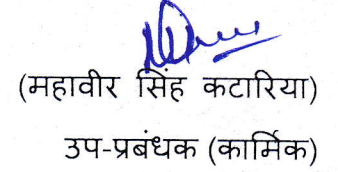 (महावीर सिंह कटारिया)
उप-प्रबंधक (कार्मिक)